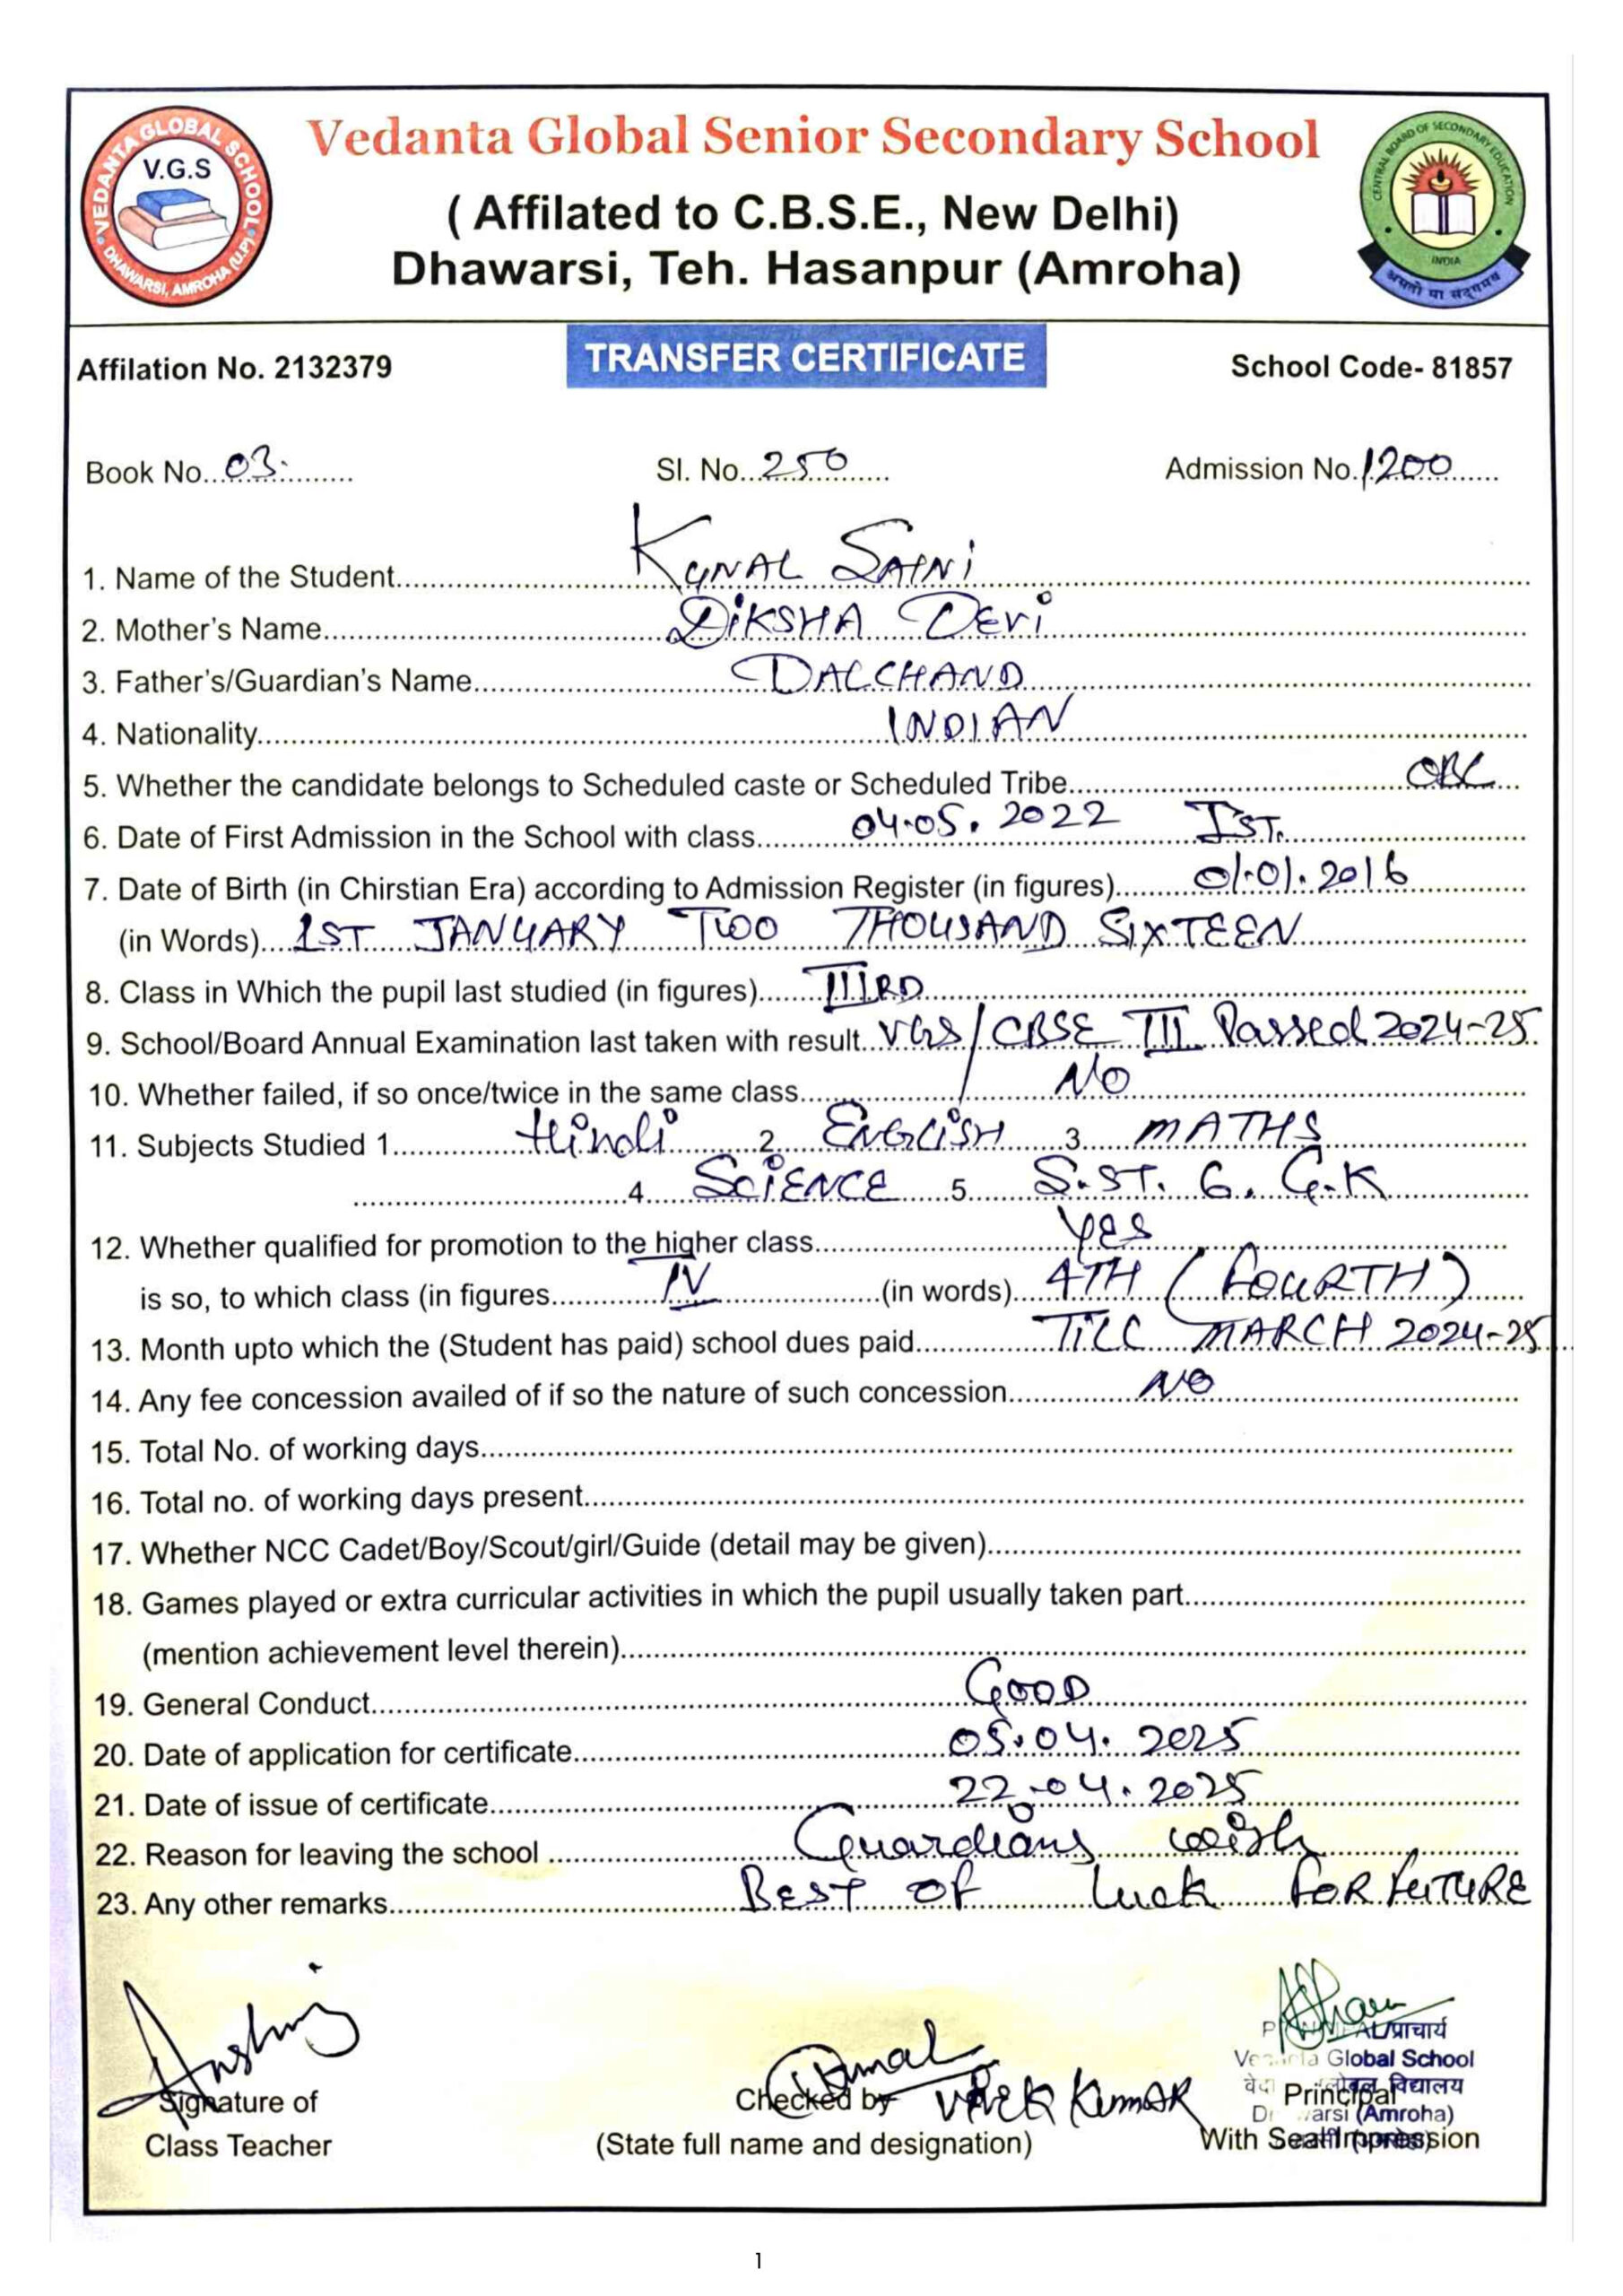 VEDANTA GLOBAL SCHOOL
V.G.S
DHAWARSI, AMROHA (U.P)
Vedanta Global Senior Secondary School
( Affilated to C.B.S.E., New Delhi)
Dhawarsi, Teh. Hasanpur (Amroha)
CENTRAL BOARD OF SECONDARY EDUCATION
INDIA
असतो मा सद्गमय
Affilation No. 2132379 TRANSFER CERTIFICATE School Code- 81857
Book No. 03. Sl. No. 250 Admission No. 1200
1. Name of the Student KUNAL SAINI
2. Mother's Name DIKSHA DEVI
3. Father's/Guardian's Name DALCHAND
4. Nationality INDIAN
5. Whether the candidate belongs to Scheduled caste or Scheduled Tribe OBC
6. Date of First Admission in the School with class 04.05.2022 IST.
7. Date of Birth (in Chirstian Era) according to Admission Register (in figures) 01.01.2016
(in Words) 1ST JANUARY TWO THOUSAND SIXTEEN
8. Class in Which the pupil last studied (in figures) IIIRD
9. School/Board Annual Examination last taken with result VGS/CBSE III Passed 2024-25
10. Whether failed, if so once/twice in the same class NO
11. Subjects Studied 1. Hindi 2. ENGLISH 3. MATHS
4. SCIENCE 5. S.ST. 6. G.K
12. Whether qualified for promotion to the higher class Yes
is so, to which class (in figures IV (in words) 4TH (FOURTH)
13. Month upto which the (Student has paid) school dues paid TILL MARCH 2024-25
14. Any fee concession availed of if so the nature of such concession NO
15. Total No. of working days
16. Total no. of working days present
17. Whether NCC Cadet/Boy/Scout/girl/Guide (detail may be given)
18. Games played or extra curricular activities in which the pupil usually taken part
(mention achievement level therein)
19. General Conduct GOOD
20. Date of application for certificate 05.04.2025
21. Date of issue of certificate 22.04.2025
22. Reason for leaving the school Guardians wish
23. Any other remarks BEST OF Luck FOR FUTURE
PRINCIPAL/प्राचार्य
Vedanta Global School
विद्यालय
(Amroha)
Signature of
Class Teacher
Checked by Vivek Kumar
(State full name and designation)
Principal
With Seal Impression
1